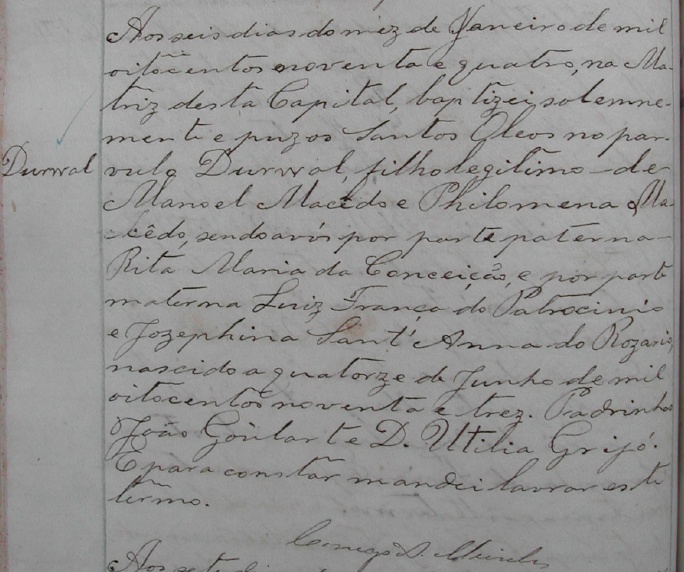 Aos seis dias do mez de Janeiro de mil
oitocentos noventa e quatro, na Ma-
triz desta Capital, baptizei solemne-
mente e puz os Santos Oleos no par-
Durval
vulo Durval, filho legitimo de
Manoel Macêdo e Philomena Ma-
cêdo, sendo avós por parte paterna
Rita Maria da Conceição, e por parte
materna Luiz França do Patrocinio
e Jozephina Sant'Anna do Rozario,
nascido a quatorze de Junho de mil
oitocentos noventa e trez. Padrinhos
João Goulart e D. Utilia Grijó.
E para constar mandei lavrar este
termo.
Conego
Aos sete di